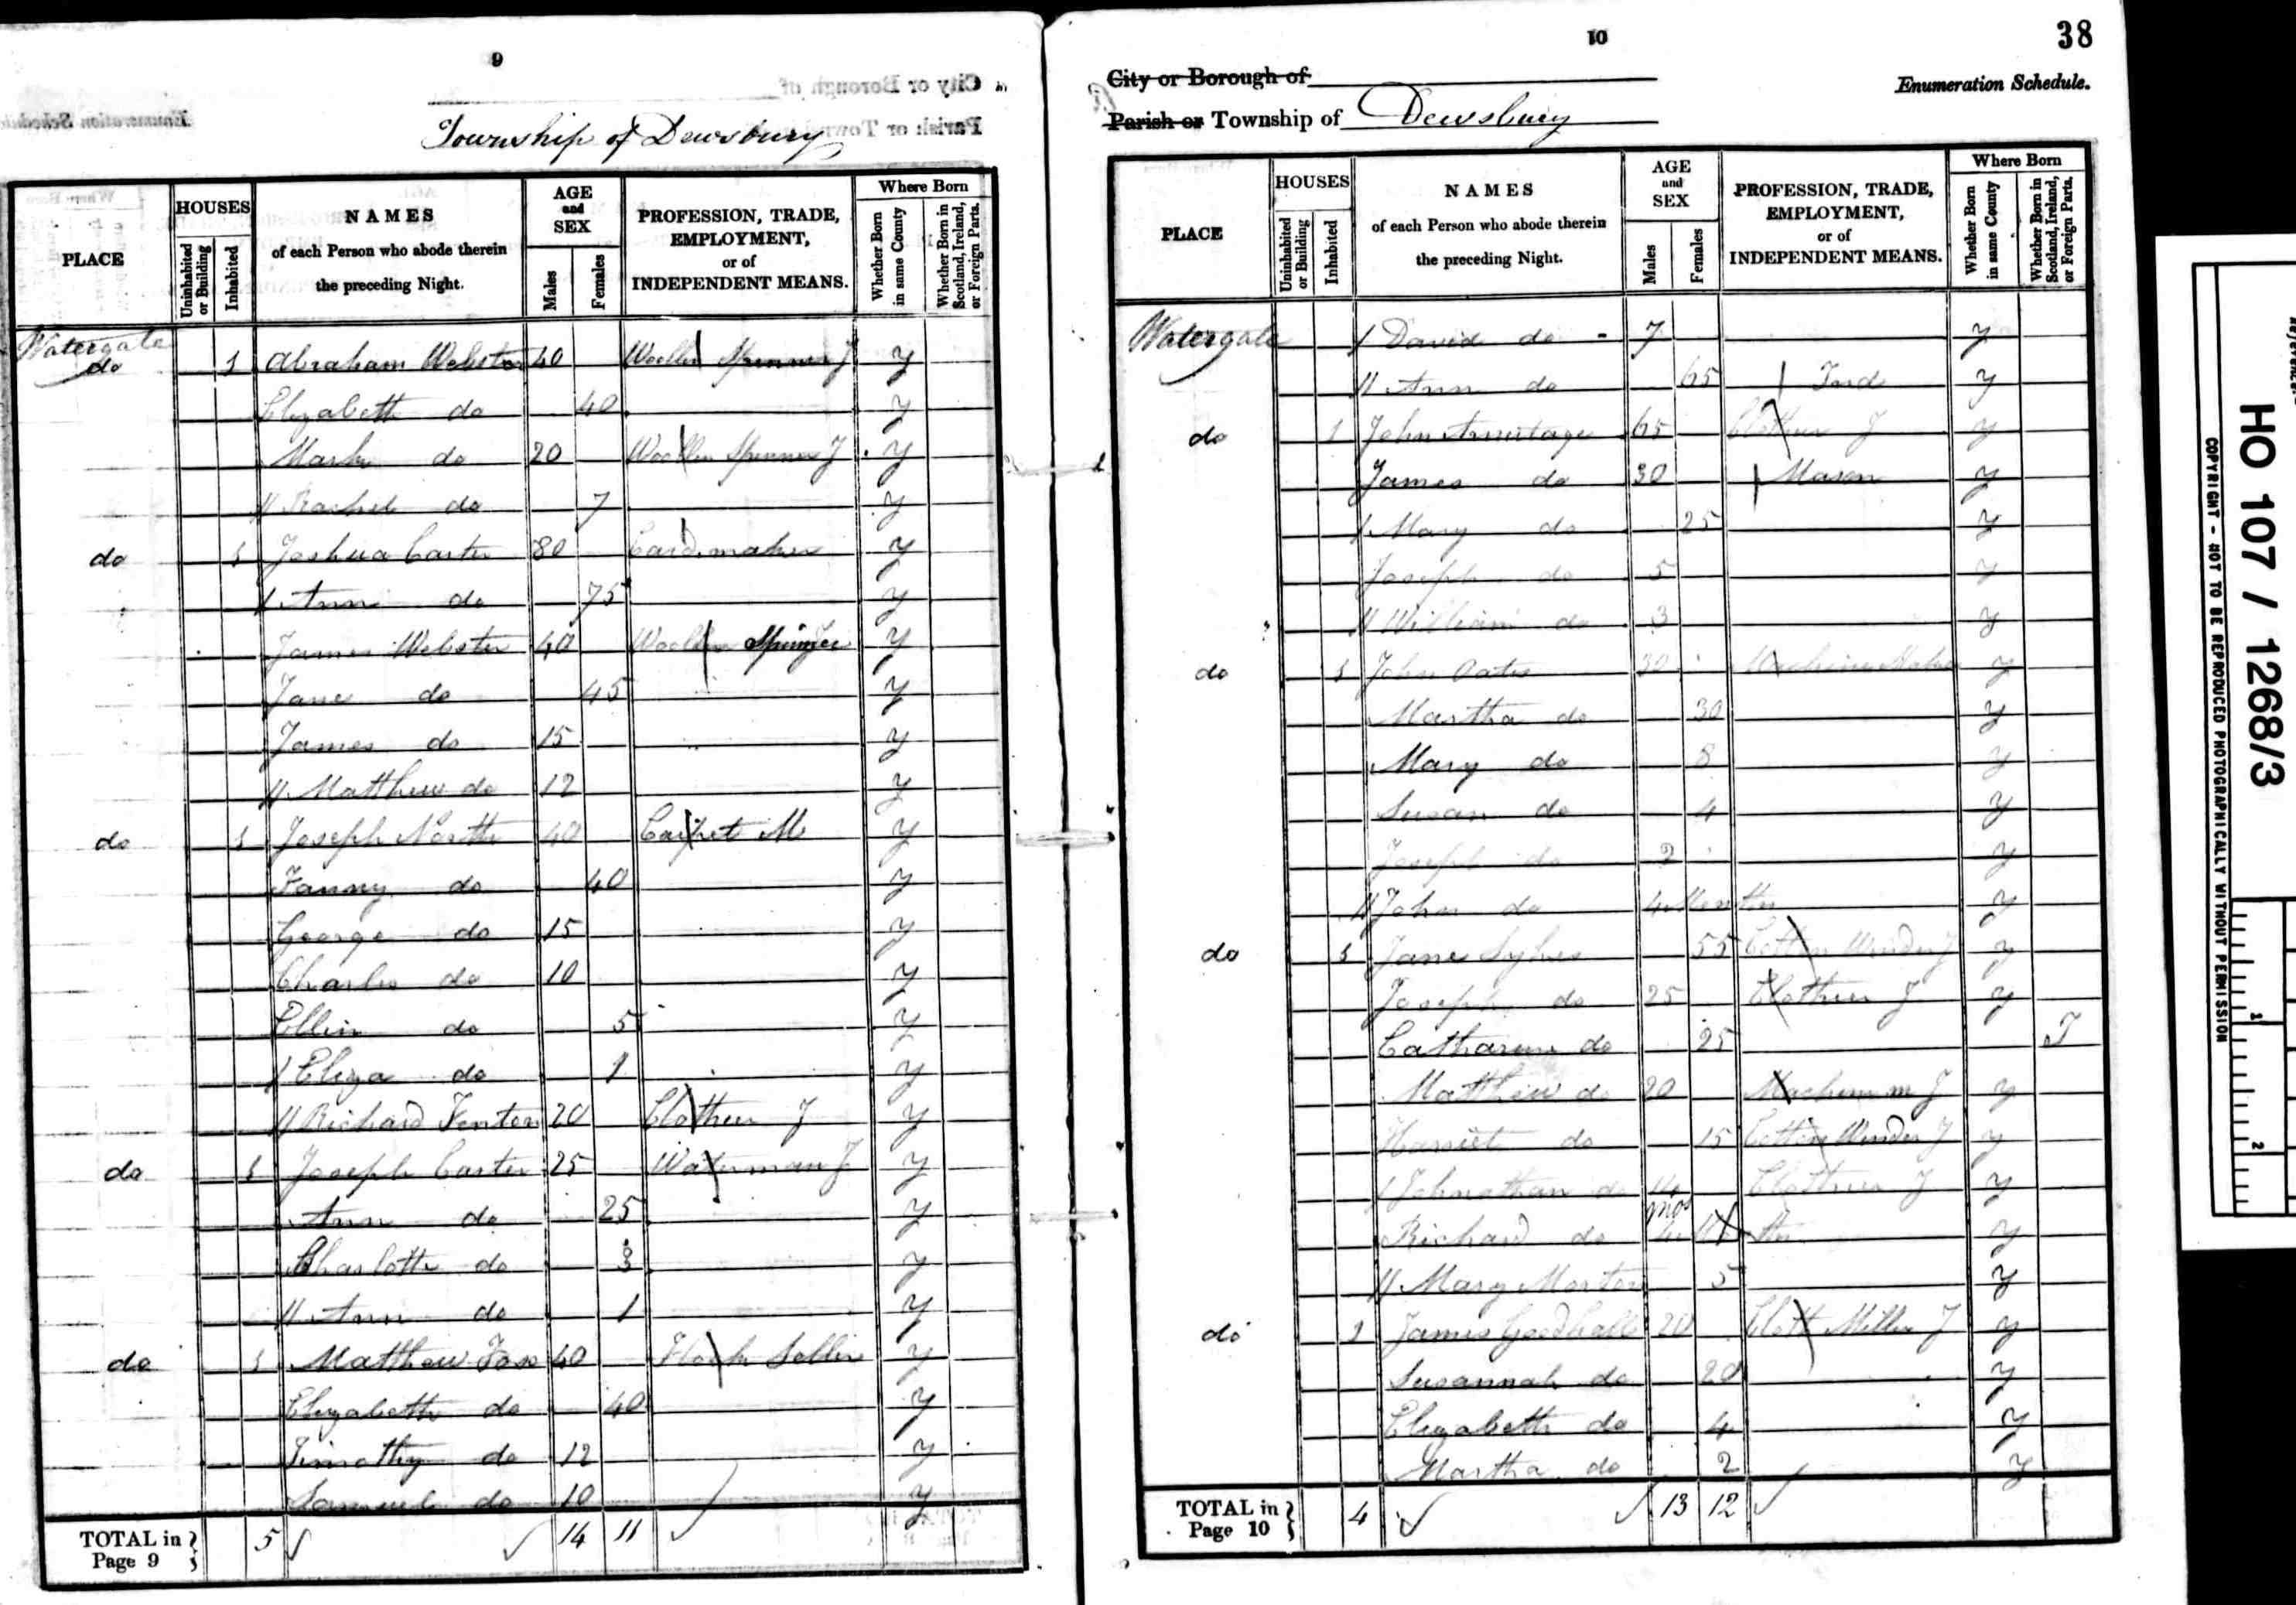 9
Township of Dewsbury
PLACE
HOUSES
Uninhabited or Building
Inhabited
NAMES
of each Person who abode therein
the preceding Night.
AGE
and
SEX
Males
Females
PROFESSION, TRADE,
EMPLOYMENT,
or of
INDEPENDENT MEANS.
Where Born
Whether Born in same County
Whether Born in Scotland, Ireland, or Foreign Parts.
Watergate
do 1 Abraham Webster 40 Woollen Spinner J y
Elizabeth do 40 y
Mark do 20 Woollen Spinner J y
// Rachel do 7 y
do 1 Joshua Carter 80 Cardmaker y
/ Ann do 75 y
James Webster 40 Woollen Spinner y
Jane do 45 y
James do 15 y
// Matthew do 12 y
do 1 Joseph North 40 Carpet M y
Fanny do 40 y
George do 15 y
Charles do 10 y
Ellin do 5 y
/ Eliza do 1 y
// Richard Fenton 20 Clothier J y
do 1 Joseph Carter 25 Waterman J y
Ann do 25 y
Charlotte do 3 y
// Ann do 1 y
do 1 Matthew Fox 40 Flock Seller y
Elizabeth do 40 y
Timothy do 12 y
Samuel do 10 y
TOTAL in Page 9 5 14 11
10
38
City or Borough of
Enumeration Schedule.
Parish or Township of Dewsbury
PLACE
HOUSES
Uninhabited or Building
Inhabited
NAMES
of each Person who abode therein
the preceding Night.
AGE
and
SEX
Males
Females
PROFESSION, TRADE,
EMPLOYMENT,
or of
INDEPENDENT MEANS.
Where Born
Whether Born in same County
Whether Born in Scotland, Ireland, or Foreign Parts.
Watergate / David do 7 y
// Ann do 65 Ind y
do 1 John Armitage 65 Clothier J y
James do 30 Mason y
/ Mary do 25 y
Joseph do 5 y
// William do 3 y
do 1 John Oates 30 Machine Maker y
Martha do 30 y
Mary do 8 y
Susan do 4 y
Joseph do 2 y
// John do 4 Months y
do 1 Jane Sykes 55 Cotton Winder J y
Joseph do 25 Clothier J y
Catharine do 25 I
Matthew do 20 Machine m J y
Harriet do 15 Cotton Winder J y
/ Johnathan do Clothier J y
Richard do mos y
// Mary Morton 5 y
do 1 James Goodhall 20 Cloth Miller J y
Susannah do 20 y
Elizabeth do 4 y
Martha do 2 y
TOTAL in Page 10 4 13 12
HO 107 / 1268/3
COPYRIGHT - NOT TO BE REPRODUCED PHOTOGRAPHICALLY WITHOUT PERMISSION
1
2